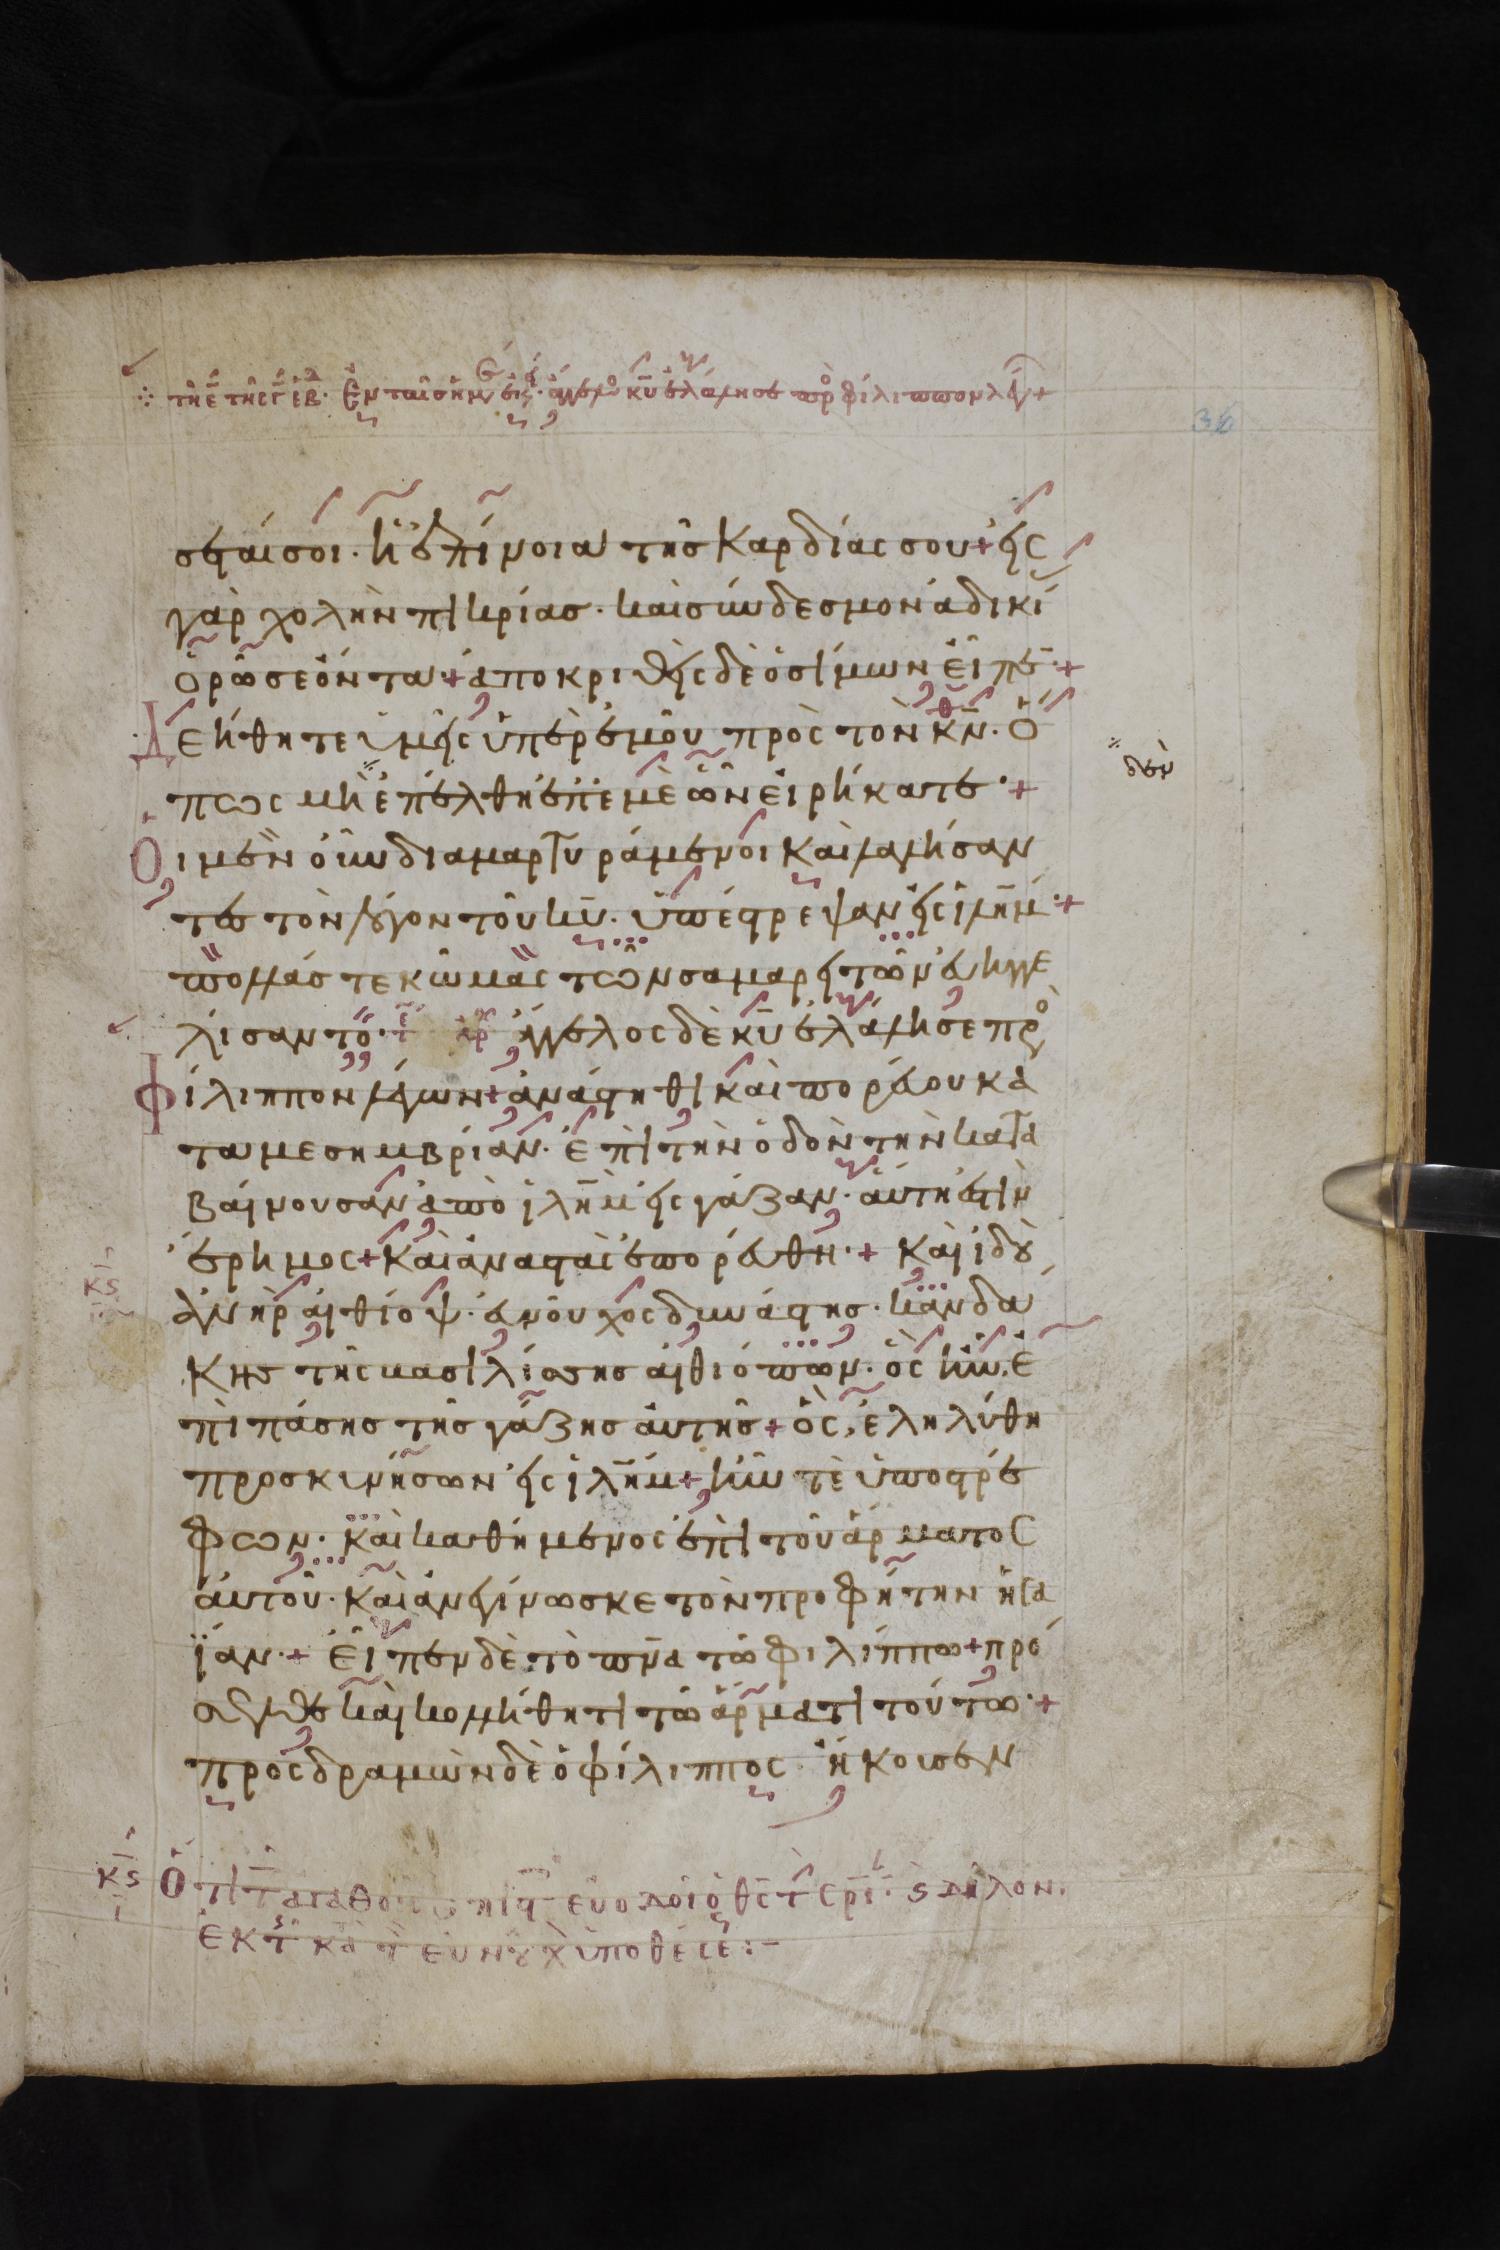 τῆ ε̄ τῆς γ̄ εβ. Ἐν ταῖς ἡμ ἐκ· ἄγγελο κ̄υ ἐλάλησε πρὸ φίλιππον λέγ+
36
σεταί σοι· ἡ ἐπίνοια τῆς καρδίας σου + εἰς
γὰρ χολὴν πικρίας· καὶ σύνδεσμον ἀδικί
ὁρῶ σε ὄντα + ἀποκριθεὶς δὲ ὁ σίμων εἶπε· +
Δεήθητε ὑμεῖς ὑπὲρ ἐμοῦ πρὸς τὸν κ̄ν· ὅ
πως μὴ ἐπέλθη ἐπ̓ ἐμὲ ὧν εἰρήκατε· +
δὲν
Οἱ μὲν οὖν διαμαρτυράμενοι καὶ λαλήσαν
τες τὸν λόγον τοῦ κ̄υ· ὑπέστρεψαν εἰς ἰλη̄μ· +
πολλάς τε κώμας τῶν σαμαρειτῶν εὐηγγε
λίσαντο· τε ἀρ ἄγγελος δὲ κ̄υ ἐλάλησε πρὸ
Φίλιππον λέγων + ἀνάστηθι καὶ πορεύου κα
τα μεσημβρίαν· ἐπὶ τὴν ὁδὸν τὴν κατα
βαίνουσαν ἀπὸ ἰλη̄μ εἰς γάζαν· αὕτη ἐστὶν
ἔρημος + καὶ ἀναστὰς ἐπορεύθη· + καὶ ἰδοὺ
κ̄ς
ἀνὴρ αἰθίοψ· εὐνοῦχος δυνάστης· κανδά
κης τῆς βασιλίσσης αἰθιόπων· ὃς ἦν ἐ
πὶ πάσης τῆς γάζης αὐτῆς + ὃς ἐληλύθη
προσκυνήσων εἰς ἰλη̄μ + ἦν τὲ ὑποστρέ
φων· καὶ καθήμενος ἐπὶ τοῦ ἅρματος
αὐτοῦ· καὶ ἀνεγίνωσκε τὸν προφήτην ἡσα
ΐαν· + εἶπεν δὲ τὸ π̄να τῶ φιλίππω + πρό
σελθε καὶ κολλήθητι τῶ ἅρματι τούτω· +
προσδραμὼν δὲ ὁ φίλιππος ἤκουσεν
κ̄ς Ὅτι τ ἀγαθοῖς εὐοδοῖ ὁ θ̄ς τ δῆλον.
ἐκ τ κα τ εὐνοῦχ ὑποθέσε :-